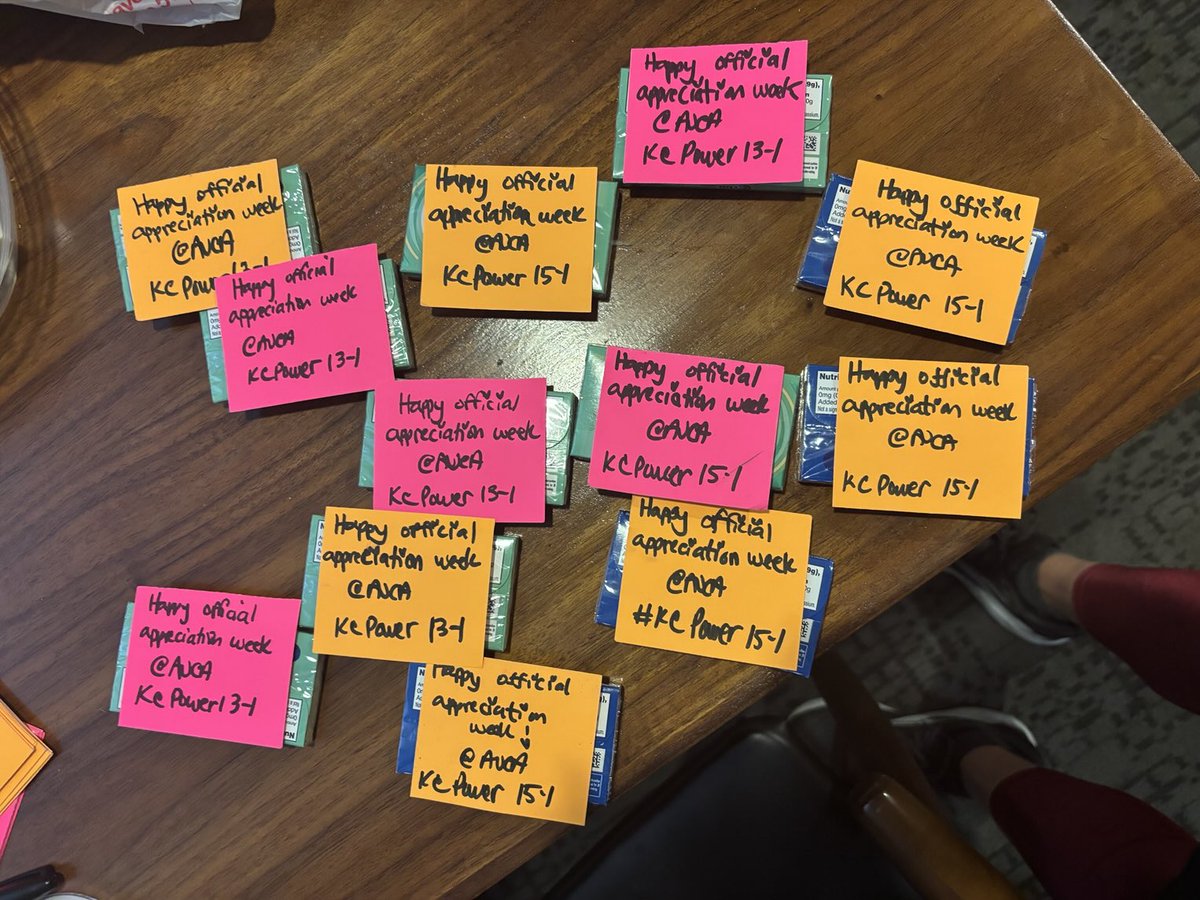 Happy official
appreciation week
@AVCA
KC Power 13-1
Happy official
appreciation week
@AVCA
KC Power 13-1
Happy official
appreciation week
@AVCA
KC Power 15-1
Happy official
appreciation week
@AVCA
KC Power 15-1
Happy official
appreciation week
@AVCA
KC Power 13-1
Happy official
appreciation week
@AVCA
KC Power 13-1
Happy official
appreciation week
@AVCA
KC Power 15-1
Happy official
appreciation week
@AVCA
KC Power 15-1
Happy official
appreciation week
@AVCA
KC Power 13-1
Happy official
appreciation week
@AVCA
#KC Power 15-1
Happy official
appreciation week
@AVCA
KC Power 13-1
Happy official
appreciation
week!
@AVCA
KC Power 15-1